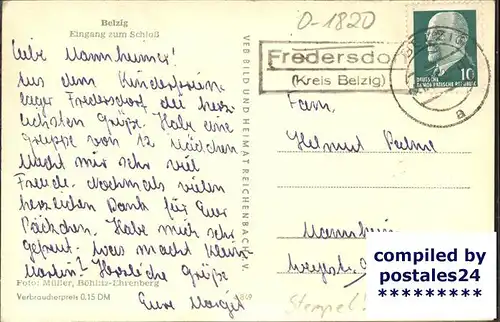 Belzig
Eingang zum Schloß
Liebe Mannheimer!
Aus dem Kinderferien-
lager Fredersdorf die herz-
lichsten Grüße. Habe eine
Gruppe von 12 Mädchen
Macht mir sehr viel
Freude. Nochmals vielen
herzlichen Dank für Euer
Päckchen. Habe mich sehr
gefreut. Was macht Klein
Martin? Herzliche Grüße
Eure Margit
Foto: Müller, Böhlitz-Ehrenberg
Verbraucherpreis 0,15 DM
VEB BILD UND HEIMAT REICHENBACH I. V.
O-1820
Fredersdo
(Kreis Belzig)
BELZIG
a
DEUTSCHE
DEMOKRATISCHE REPUBLIK
10
Fam.
Helmut
Mannheim
Stempel!
compiled by
postales24
*********